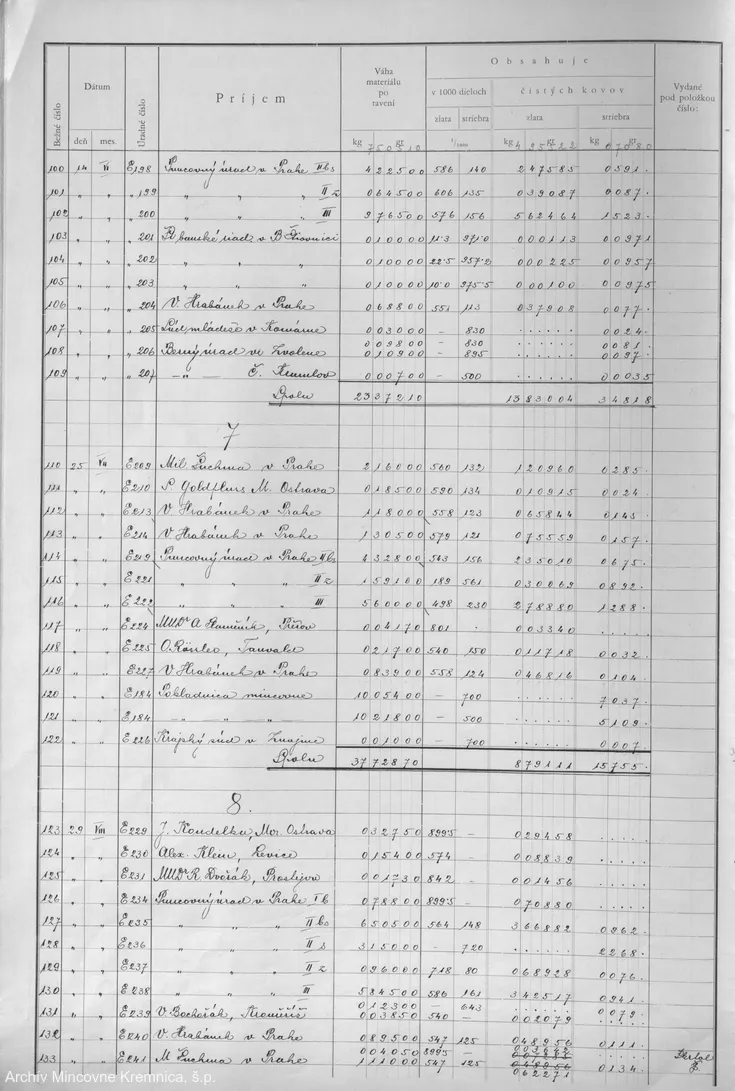 Obsahuje
Bežné číslo
Dátum
deň
mes.
Úradné číslo
Príjem
Váha materiálu po tavení
v 1000 dieloch
zlata
striebra
čistých kovov
zlata
striebra
Vydané pod položkou číslo:
kg 750510 gr 1/1000 kg 495722 gr kg 07080 gr
100 14 VI E198 Puncovný úrad v Prahe II bs 422500 586 140 247585 0591.
101 " " " 199 " " " II z 064500 606 135 039087 0087.
102 " " " 200 " " " III 976500 576 156 562464 1523.
103 " " " 201 Št. banské riad. v B. Štiavnici 010000 11.3 971.0 000113 00971
104 " " " 202 " " 010000 22.5 957.2 000225 00957
105 " " " 203 " " 010000 10.0 975.5 000100 00975
106 " " " 204 V. Hrabánek v Prahe 068800 551 113 037908 0077.
107 " " " 205 Súd mládeže v Komárne 003000 – 830 ...... 0024.
108 " " " 206 Berný úrad vo Zvolene 009800 – 830 0081.
010900 – 895 ...... 0097.
109 " " " 207 –"– Č. Krumlov 000700 – 500 ...... 00035
Spolu 2337210 1383004 34818
7
110 25 VII E209 Mil. Luchma v Prahe 216000 560 132 120960 0285.
111 " " E210 P. Goldfluss M. Ostrava 018500 590 134 010915 0024
112 " " E213 V. Hrabánek v Prahe 118000 558 123 065844 0145.
113 " " E214 V. Hrabánek v Prahe 130500 579 121 075559 0157.
114 " " E219 Puncovný úrad v Prahe II bs 432800 543 156 235010 0675.
115 " " E221 " " " II z 159100 189 561 030069 0892.
116 " " E222 " " " III 560000 498 230 278880 1288.
117 " " E224 MUDr A. , Přerov 004170 801 . 003340 .....
118 " " E225 O. Rössler, Tanvald 021700 540 150 011718 0032
119 " " E227 V. Hrabánek v Prahe 083900 558 124 046816 0104.
120 " " E184 Pokladnica mincovne 1005400 – 700 ...... 7037.
121 " " E184 –"– " " 1021800 – 500 ...... 5109.
122 " " E226 Krajský súd v Znojme 001000 – 700 ...... 0007.
Spolu 3772870 879111 15755.
8.
123 29 VIII E229 J. Koudelka, Mor. Ostrava 032750 899.5 – 029458 .....
124 " " E230 Alex. Klein, Levice 015400 574 – 008839 .....
125 " " E231 MUDr R. Dvořák, Prostějov 001730 842 – 001456 .....
126 " " E234 Puncovný úrad v Prahe I b 078800 899.5 – 070880 .....
127 " " E235 " " " II bs 650500 564 148 366882 0962.
128 " " E236 " " " II s 315000 – 720 ...... 2268.
129 " " E237 " " " II z 096000 718 80 068928 0076.
130 " " E238 " " " III 584500 586 161 342517 0941.
131 " " E239 V. Bochořák, Kroměříž 012300 – 643 ...... 0079.
003850 540 – 002079
132 " " E240 V. Hrabánek v Prahe 089500 547 125 048956 0111.
133 " " E241 M. Luchma v Prahe 004050 899.5 –
111000 547 125 062271 0134.
Archív Mincovne Kremnica, š.p.